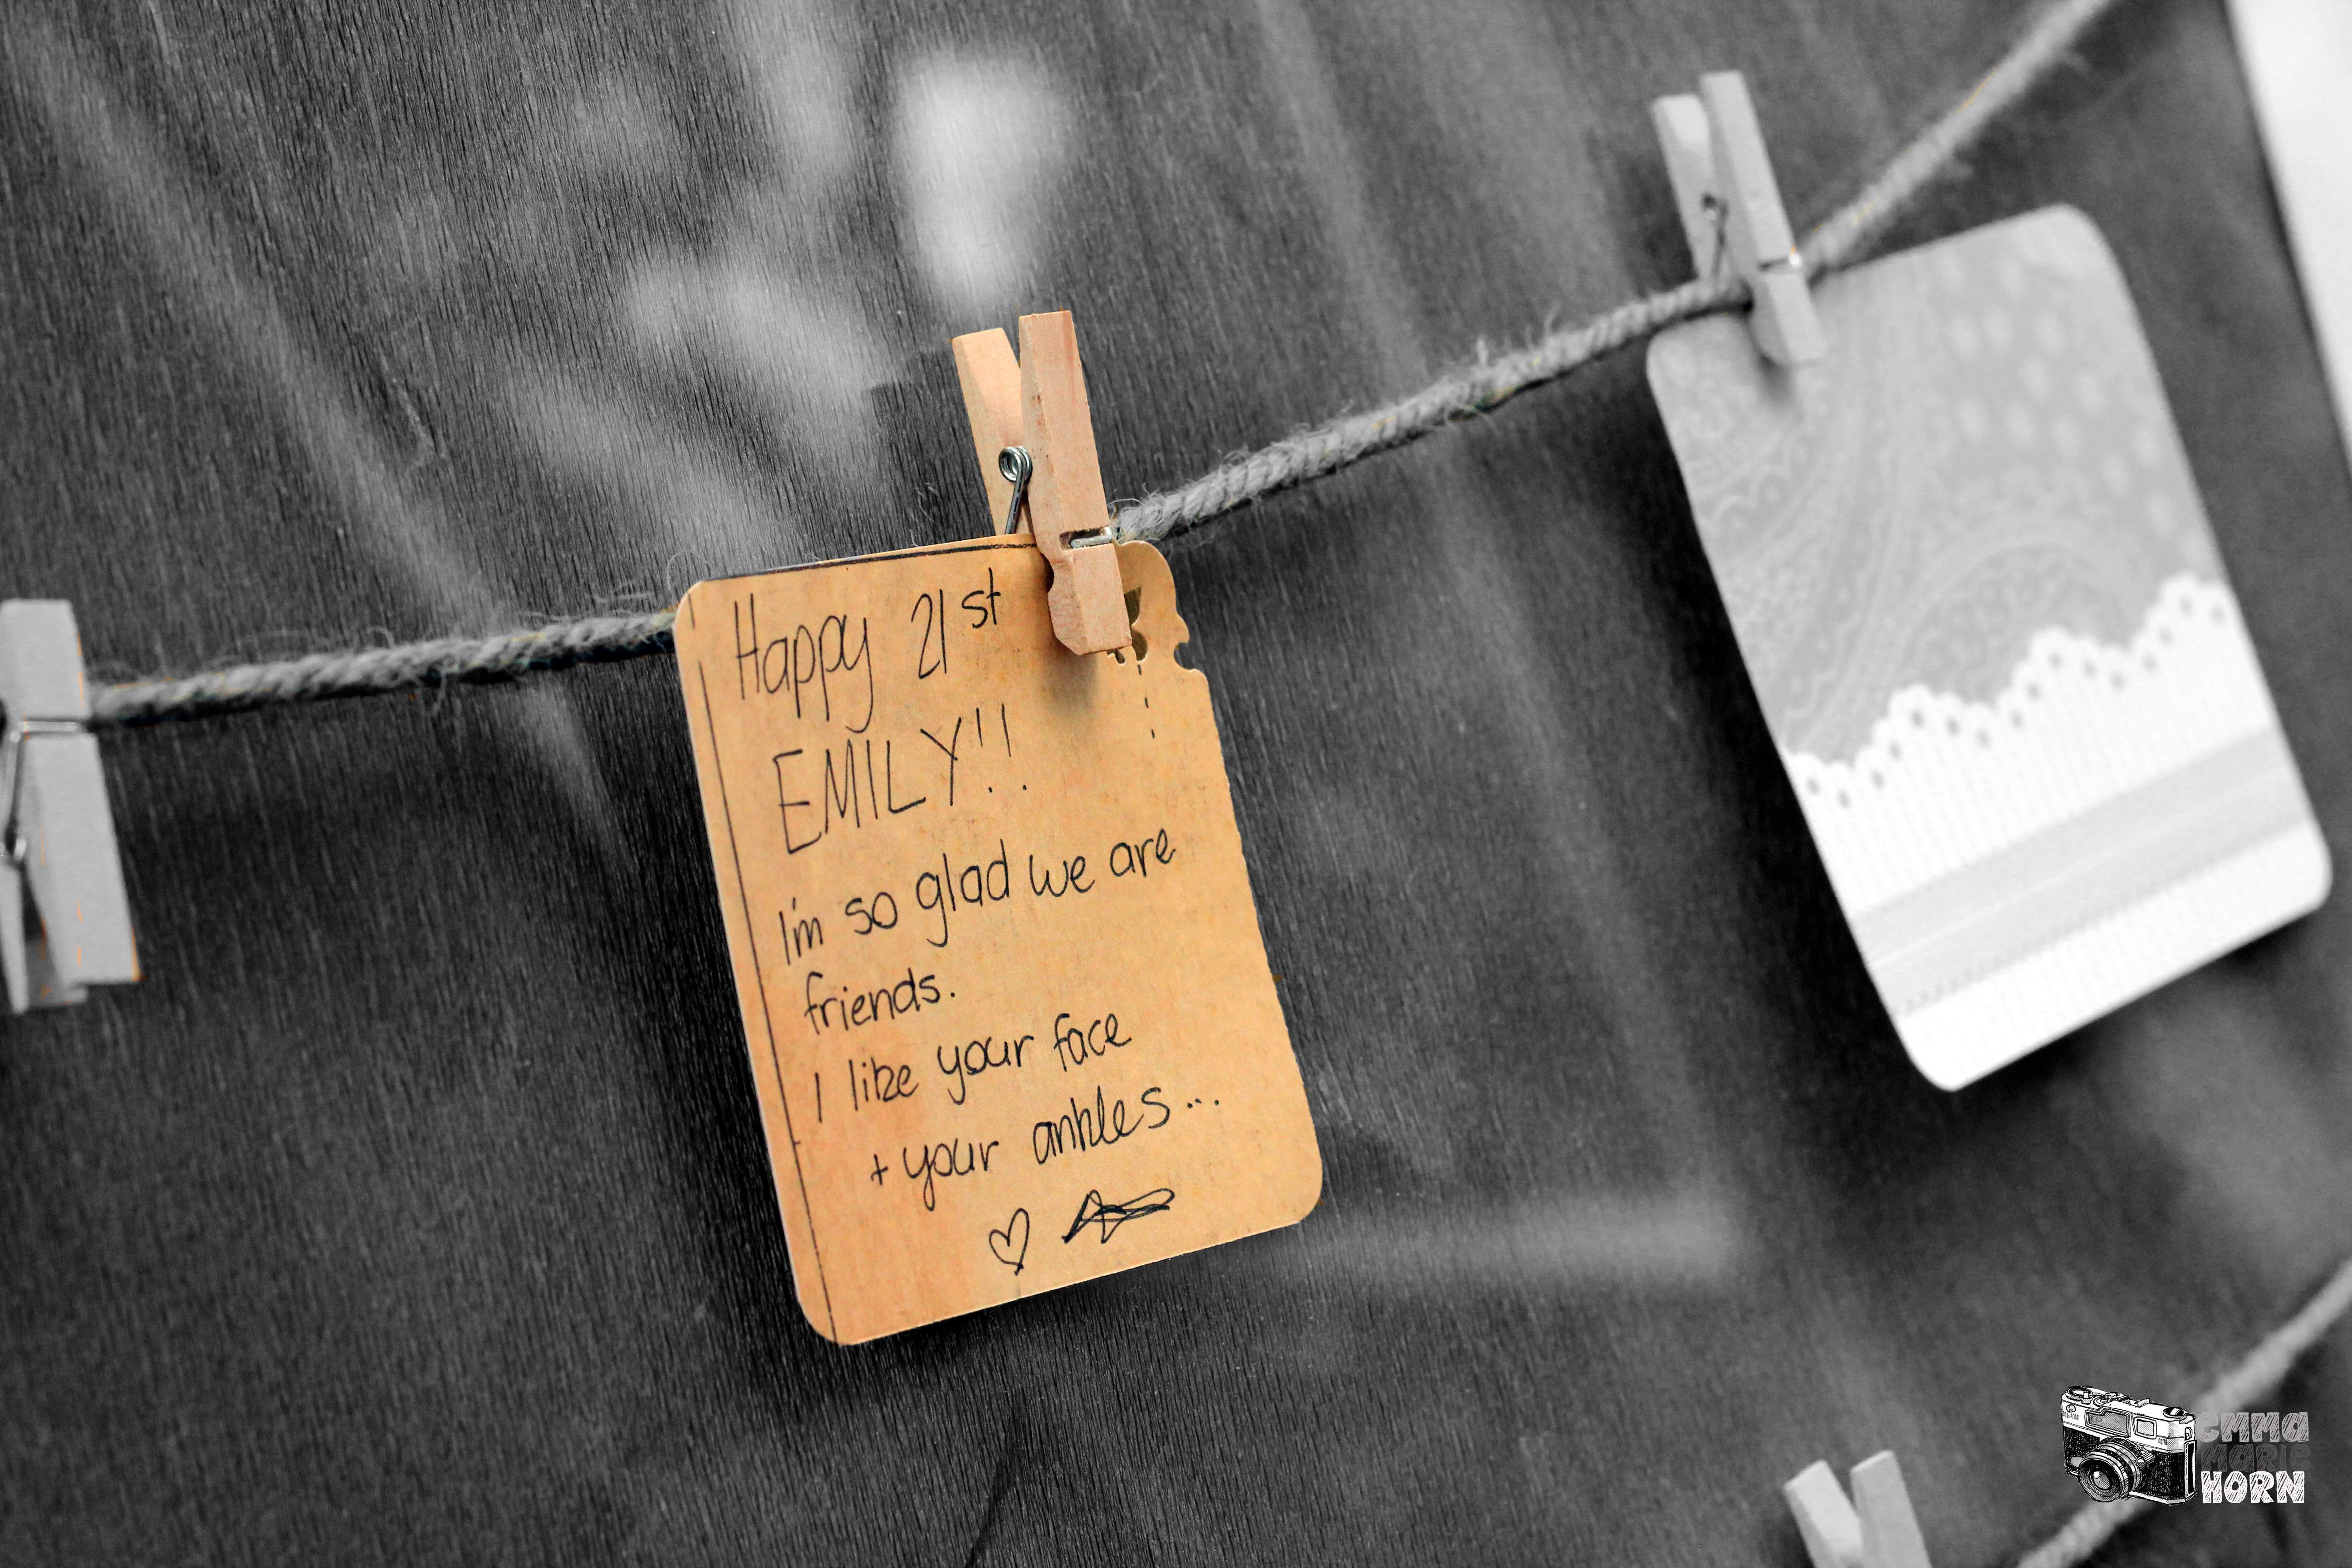 Happy 21st
EMILY!!
I'm so glad we are
friends.
I like your face
+ your ankles...
EMMA
MARIE
HORN